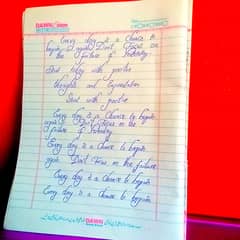 Every day is a Chance to
begain again Don't Focus on
the failure of Yesterday.
Start today with positive
thoughts and Expectation
Start with positive
Every day is a Chance to begain
again Don't Focus on the
failure of Yesterday
Every day is a Chance to begain
again Don't Focus on the failure
Every day is a Chance to begain
Every day is a Chance to begain